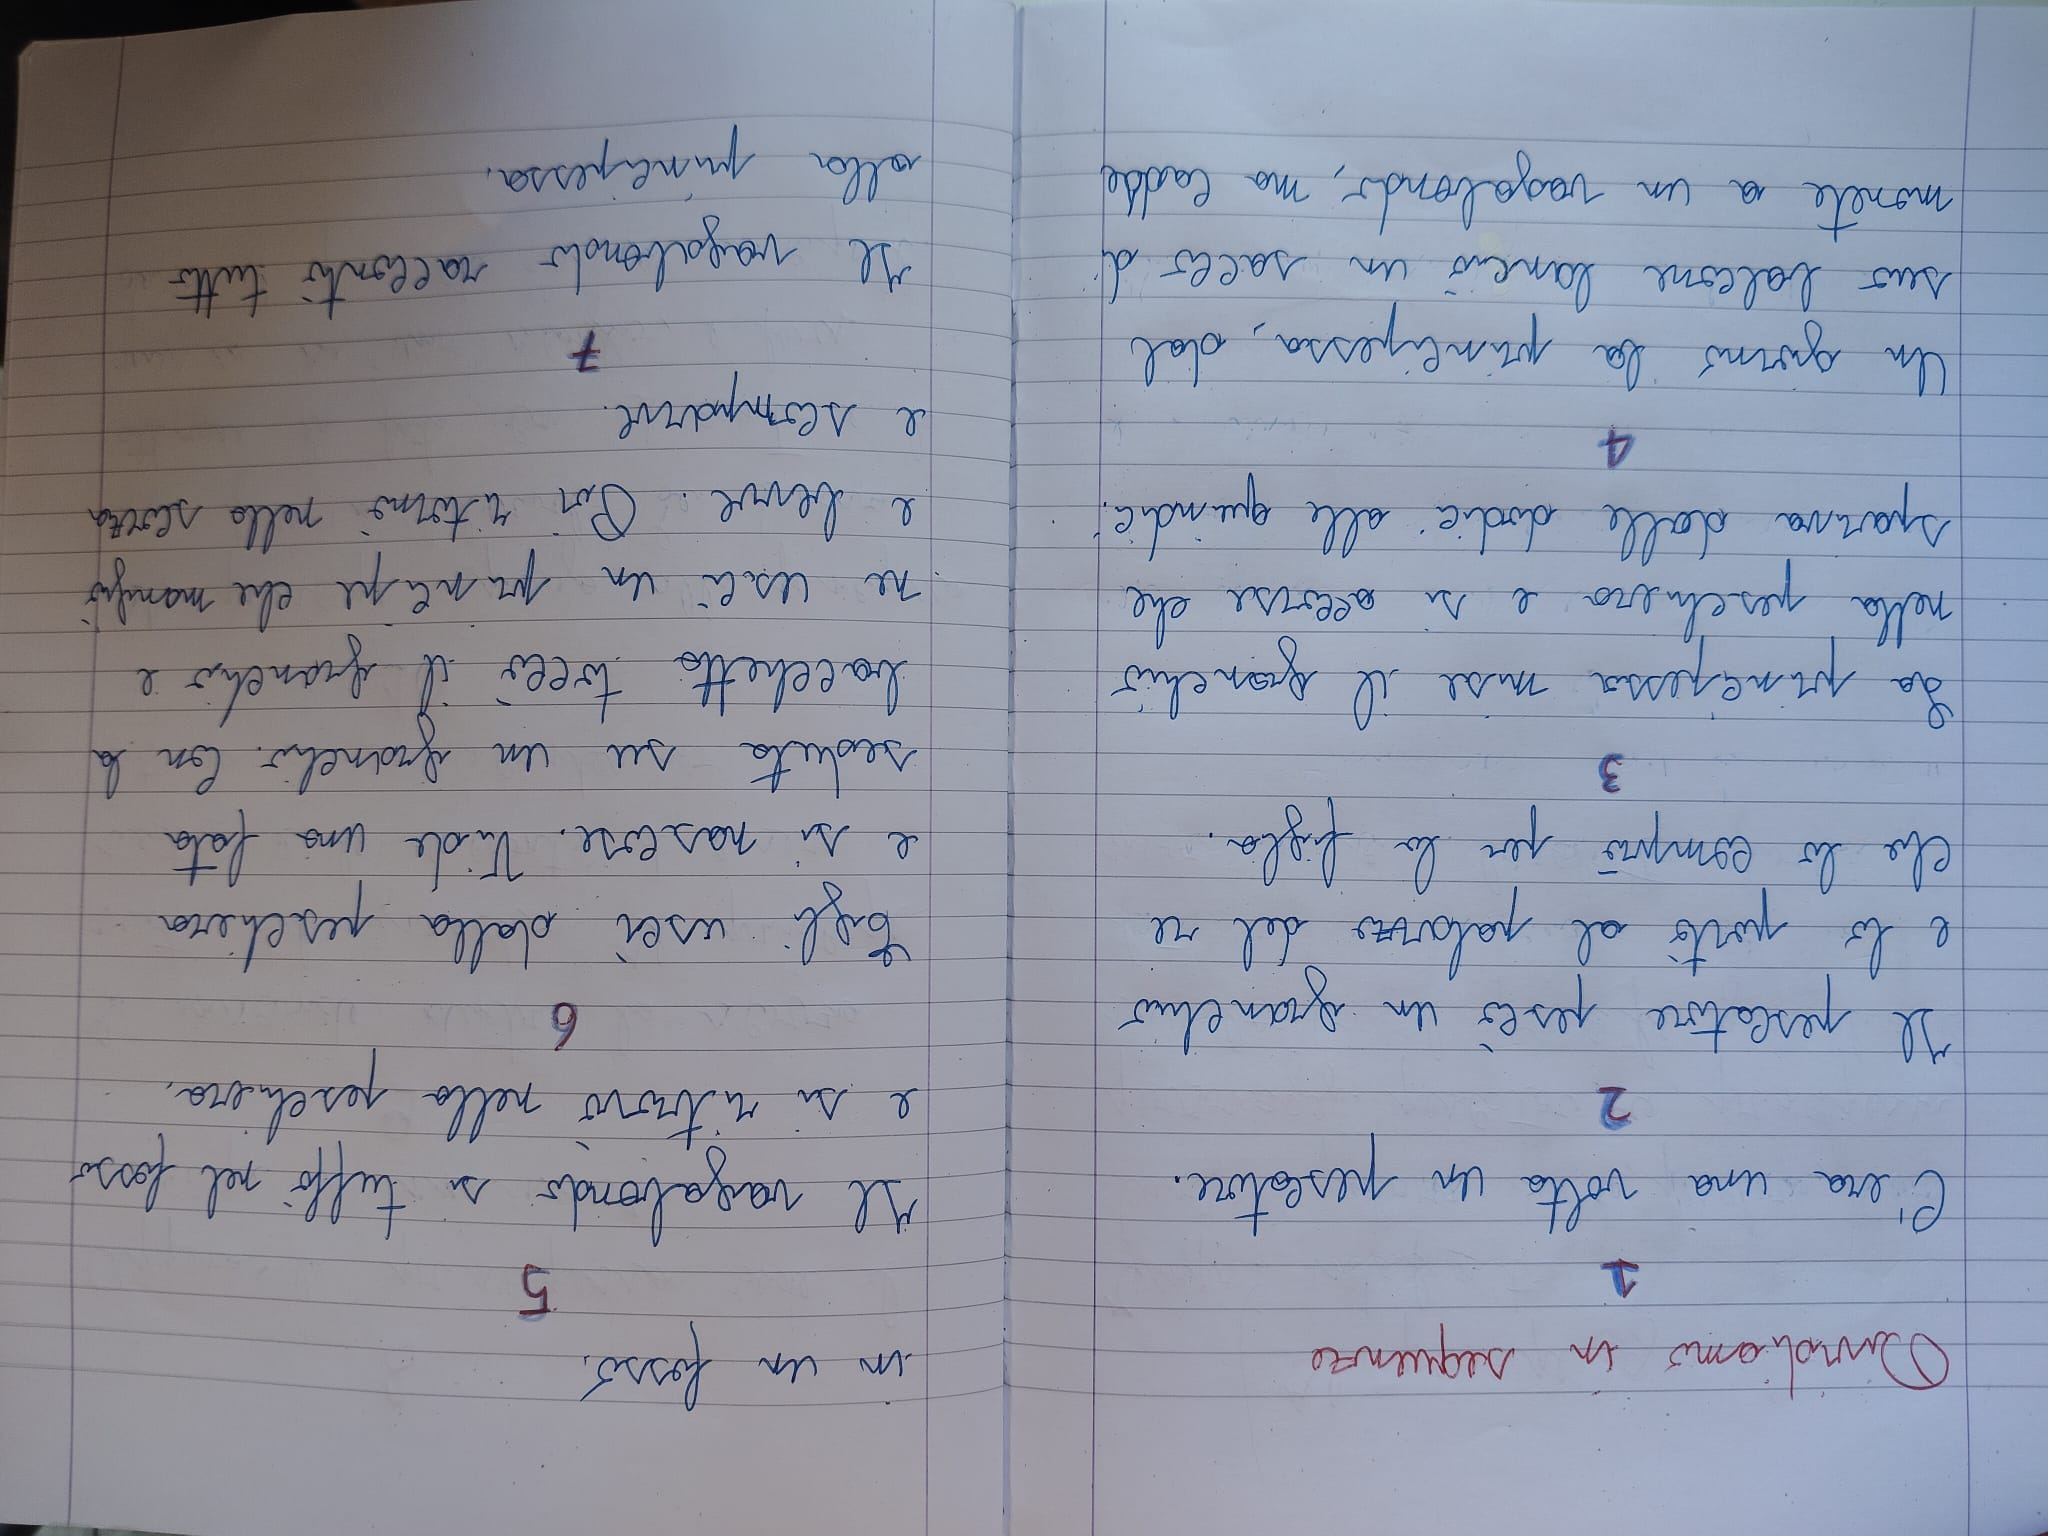 Dividiamo in sequenze
1
C'era una volta un pescatore.
2
Il pescatore pescò un granchio
e lo portò al palazzo del re
che lo comprò per la figlia.
3
La principessa mise il granchio
nella peschiera e si accorse che
spariva dalle dodici alle quindici.
4
Un giorno la principessa, dal
suo balcone lanciò un sacco di
monete a un vagabondo, ma cadde
in un fosso.
5
Il vagabondo si tuffò nel fosso
e si ritrovò nella peschiera.
6
Egli uscì dalla peschiera
e si nascose. Vide una fata
seduta su un granchio. Con la
bacchetta toccò il granchio e
ne uscì un principe che mangiò
e bevve. Poi ritornò nella scorza
e scomparve.
7
Il vagabondo raccontò tutto
alla principessa.